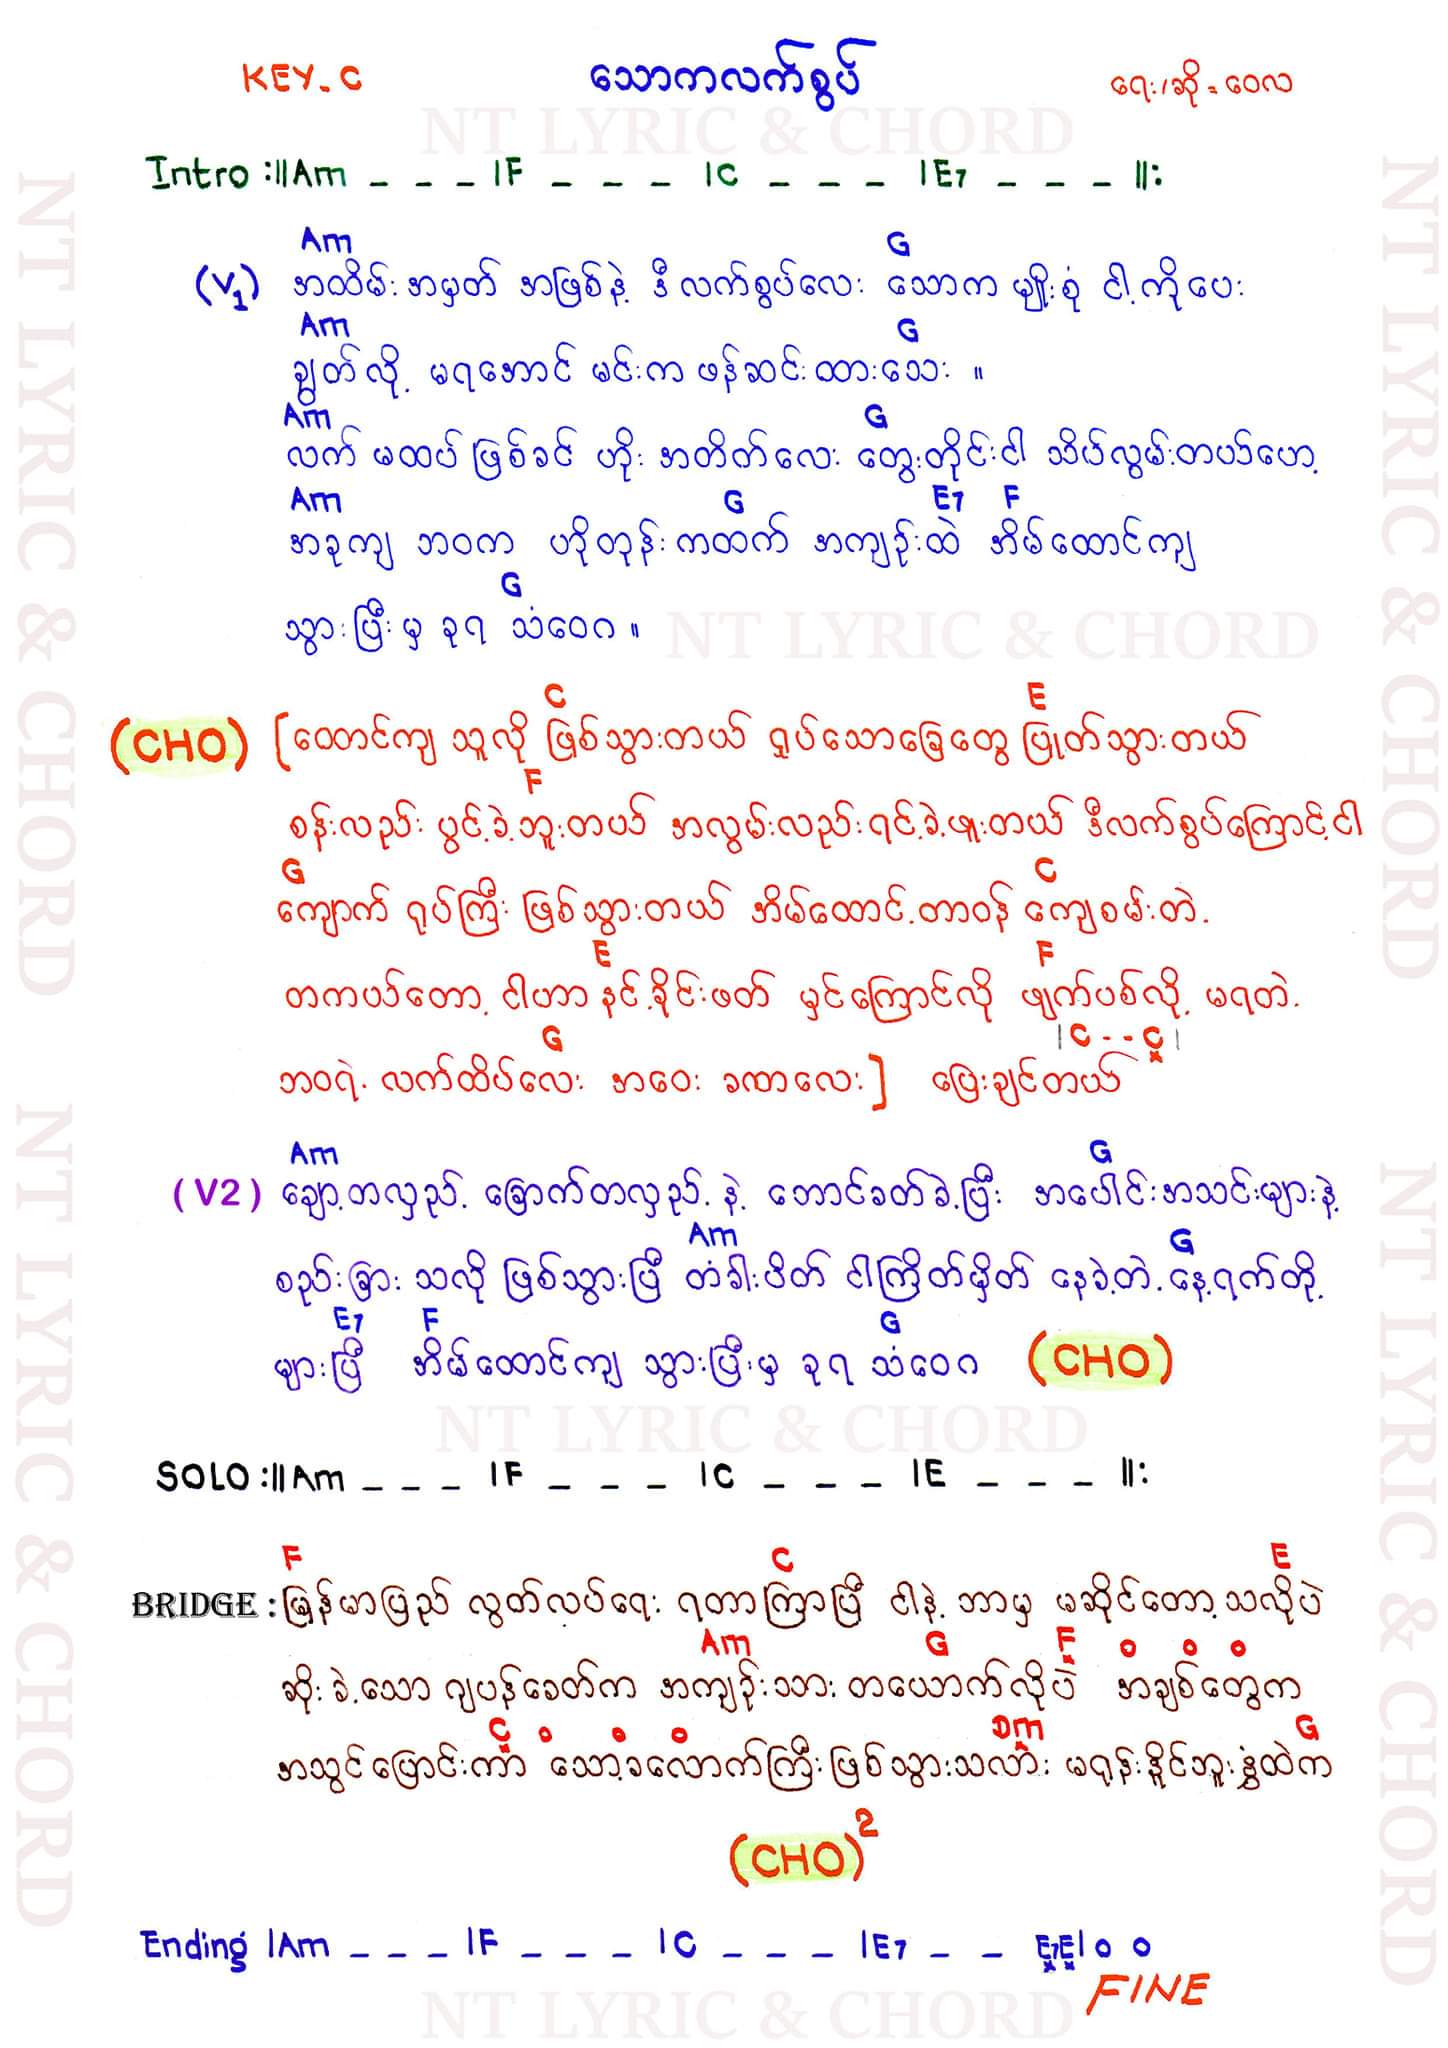 KEY-C သောကလက်စွပ် ရေး/ဆို = ဝေလ
NT LYRIC & CHORD
Intro :||Am _ _ _ |F _ _ _ |C _ _ _ |E7 _ _ _ ||:
Am G
(V1) အထိမ်းအမှတ် အဖြစ်နဲ့ ဒီလက်စွပ်လေး သောက မျိုးစုံ ငါ့ကိုပေး
Am G
ချွတ်လို့ မရအောင် မင်းက ဖန်ဆင်းထားသေး ။
Am G
လက် မထပ် ဖြစ်ခင် ဟိုး အတိတ်လေး တွေးတိုင်းငါ သိပ်လွမ်းတယ်ဟေ့
Am G E7 F
အခုကျ ဘဝက ဟိုတုန်းကထက် အကျဉ်းထဲ အိမ်ထောင်ကျ
G
သွားပြီးမှ ခုရ သံဝေဂ ။
NT LYRIC & CHORD
C E
(CHO) [ထောင်ကျ သူလို ဖြစ်သွားတယ် ရှုပ်သောခြေတွေ ပြုတ်သွားတယ်
F
စန်းလည်း ပွင့်ခဲ့ဘူးတယ် အလွမ်းလည်းရင့်ခဲ့ဖူးတယ် ဒီလက်စွပ်ကြောင့်ငါ
G C
ကျောက် ရုပ်ကြီး ဖြစ်သွားတယ် အိမ်ထောင့်တာဝန် ကျေစမ်းတဲ့
E F
တကယ်တော့ ငါဟာ နှင့်ခိုင်းဖတ် မှင်ကြောင်လို ဖျက်ပစ်လို့ မရတဲ့
G |C - - C|
ဘဝရဲ့ လက်ထိပ်လေး အဝေး ခဏလေး] ပြေးချင်တယ်
Am G
(V2) ချော့တလှည့် ခြောက်တလှည့် နဲ့ ထောင်ခတ်ခဲ့ပြီး အပေါင်းအသင်းများနဲ့
Am G
စည်းခြား သလို ဖြစ်သွားပြီ တံခါးပိတ် ငါကြိတ်မှိတ် နေခဲ့တဲ့ နေ့ရက်တို့
E7 F G
များပြီ အိမ်ထောင်ကျ သွားပြီးမှ ခုရ သံဝေဂ (CHO)
NT LYRIC & CHORD
SOLO :||Am _ _ _ |F _ _ _ |C _ _ _ |E _ _ _ ||:
F C E
BRIDGE : မြန်မာပြည် လွတ်လပ်ရေး ရတာကြာပြီ ငါနဲ့ ဘာမှ မဆိုင်တော့သလိုပဲ
Am G F o o o
ဆိုးခဲ့သော ဂျပန်ခေတ်က အကျဉ်းသား တယောက်လိုပဲ အချစ်တွေက
C o o o Dm G
အသွင်ပြောင်းကာ သော့ခလောက်ကြီးဖြစ်သွားသလား မရုန်းနိုင်ဘူးနွံထဲက
(CHO)2
Ending |Am _ _ _ |F _ _ _ |C _ _ _ |E7 _ _ E7E|o o
FINE
NT LYRIC & CHORD
NT LYRIC & CHORD
NT LYRIC & CHORD
NT LYRIC & CHORD
NT LYRIC & CHORD